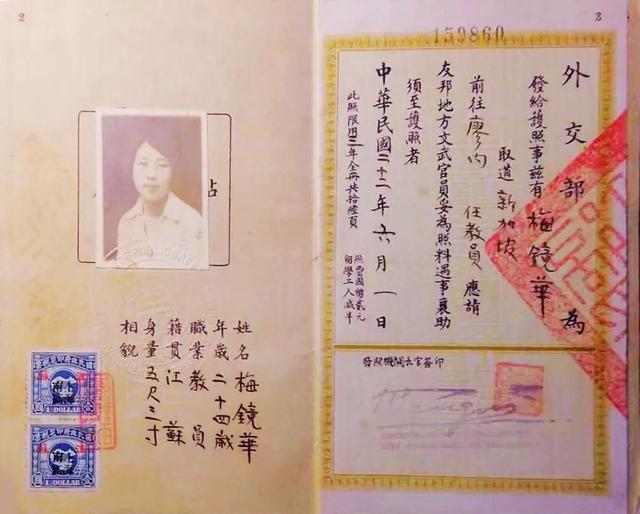 2
姓名 梅鏡華
年歲 二十四歲
職業 教員
籍貫 江蘇
身量 五尺三寸
相貌
1 DOLLAR
1 DOLLAR
3
159860
外交部 為
發給護照事茲有 梅鏡華
取道 新加坡
前往 廖內 任教員 應請
友邦地方文武官員妥為照料遇事襄助
須至護照者
中華民國二十二年六月一日
照費國幣貳元
留學工人減半
此照限用三年全冊共拾陸頁
發照機關長官簽印